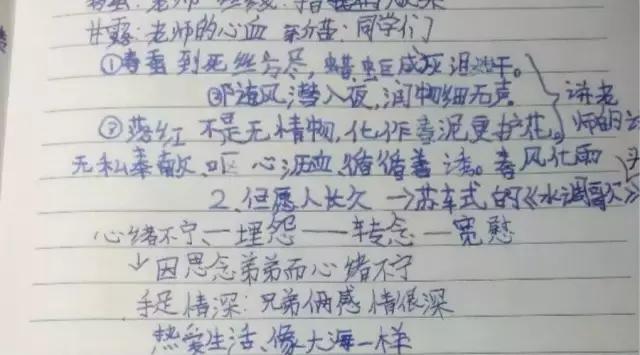 甘露:老师的心血 新苗:同学们
①春蚕到死丝方尽,蜡炬成灰泪始干。
随风潜入夜,润物细无声
②落红不是无情物,化作春泥更护花。
讲老师的
无私奉献、呕心沥血、循循善诱。春风化雨
2、但愿人长久→苏车式的《水调歌》
心绪不宁、—埋怨——转念—宽慰
↓因思念弟弟而心绪不宁
手足情深:兄弟俩感情很深
热爱生活、像大海一样